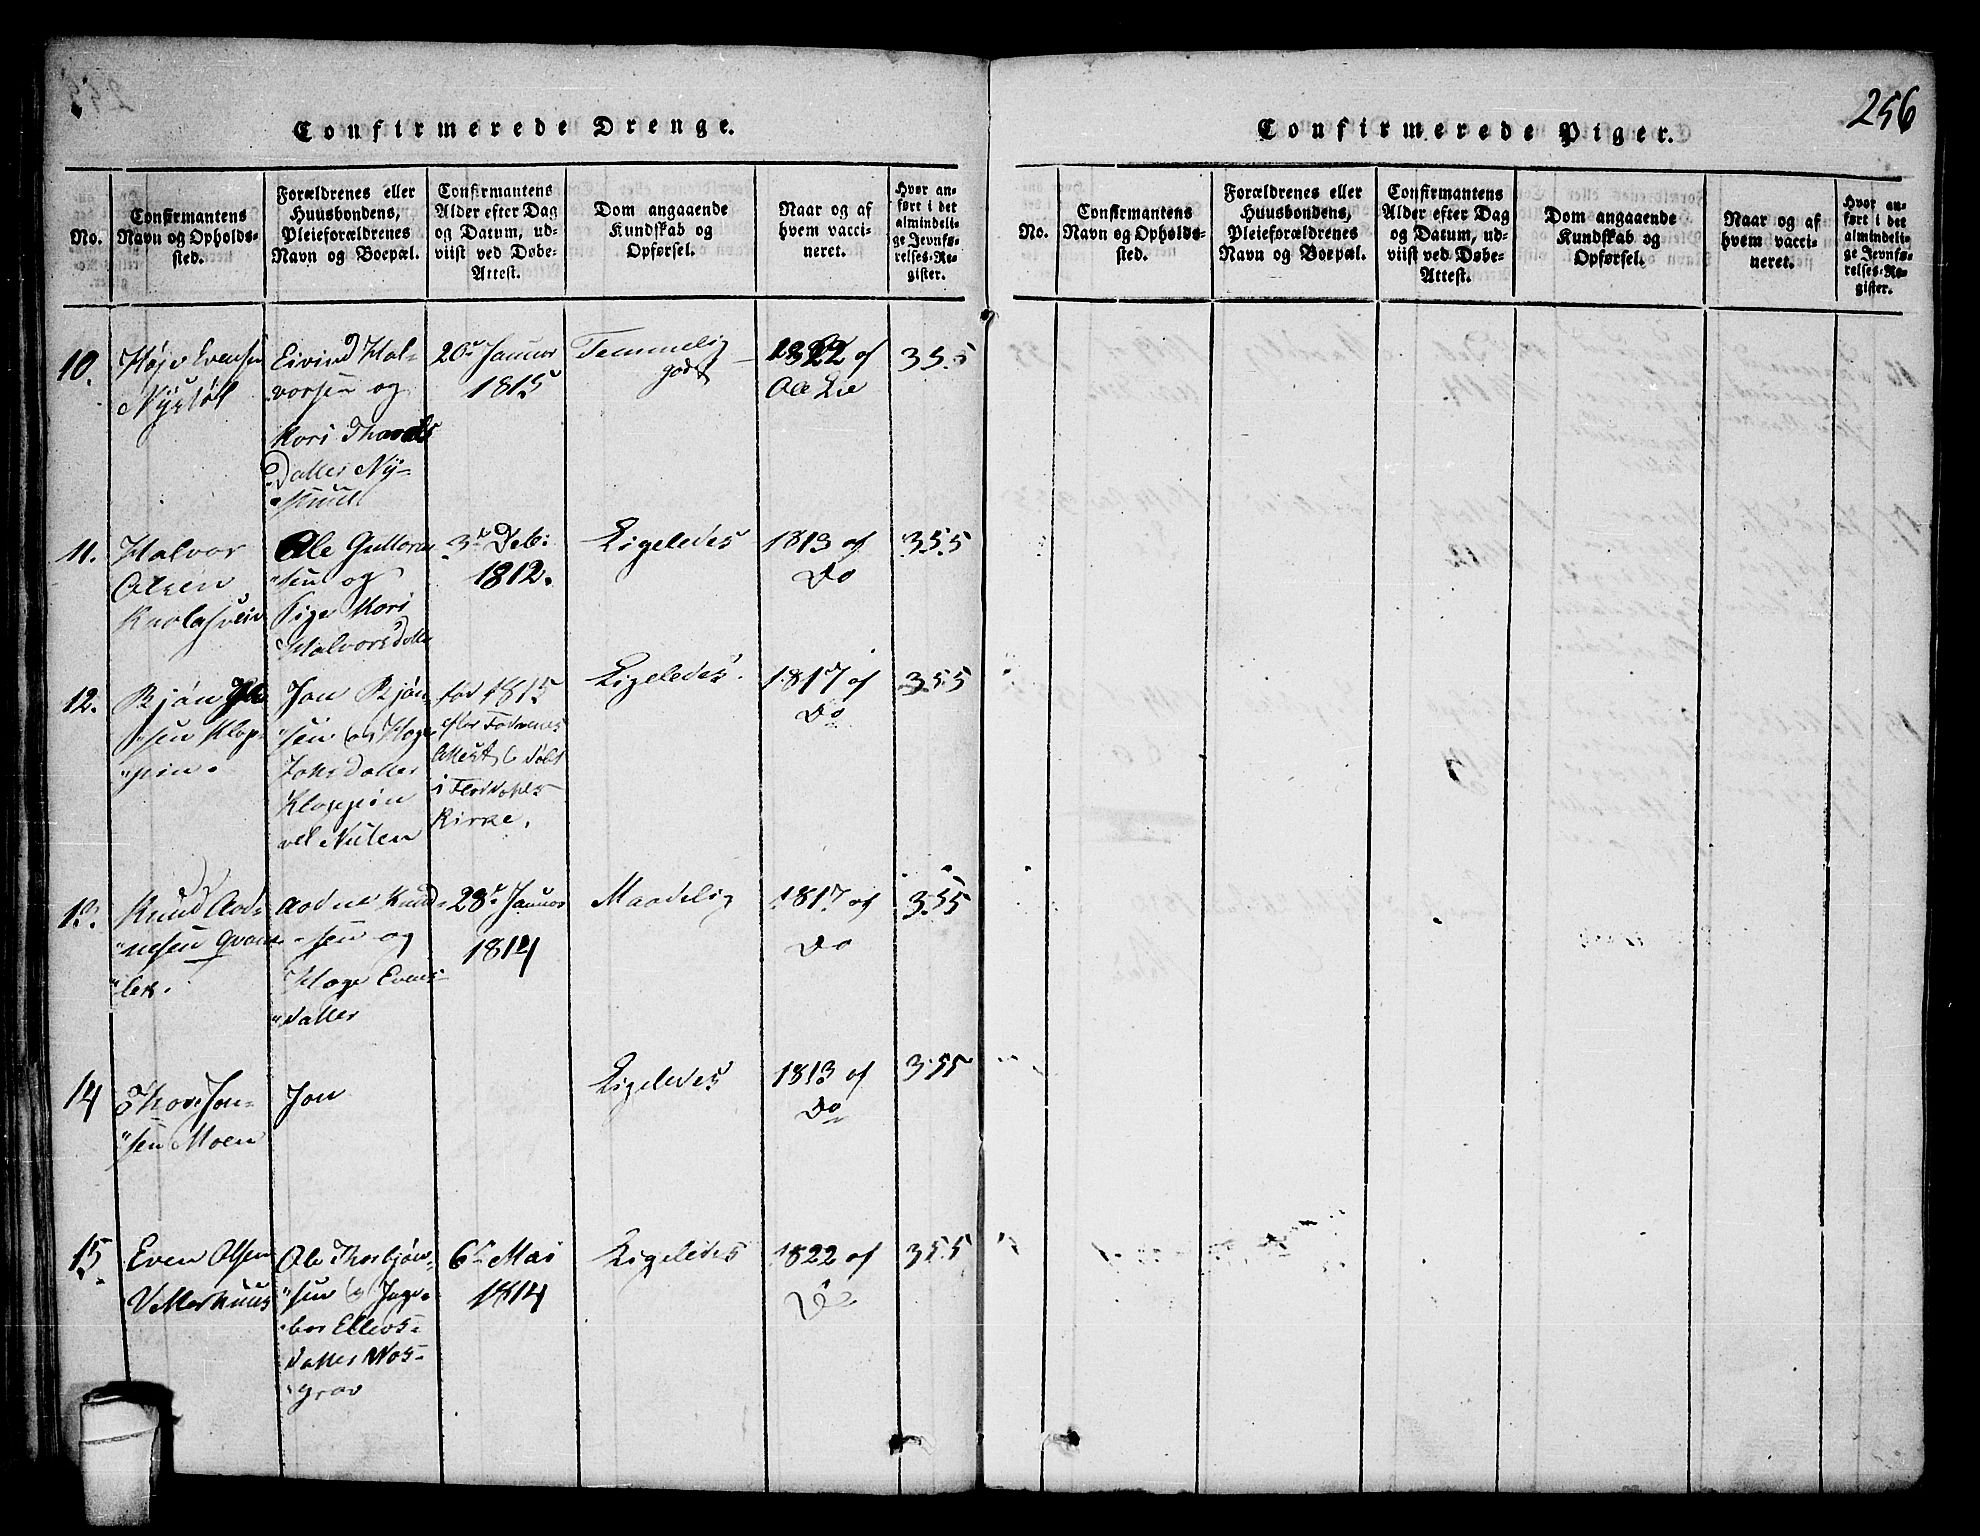 256
Confirmerede Drenge.
No.
Confirmantens
Navn og Opholds-
sted.
Forældrenes eller
Huusbondens,
Pleieforældrenes
Navn og Boepæl.
Confirmantens
Alder efter Dag
og Datum, ud-
viist ved Døbe-
Attest.
Dom angaaende
Kundskab og
Opførsel.
Naar og af
hvem vacci-
neret.
Hvor an-
ført i det
almindeli-
ge Jevnfø-
relses-Re-
gister.
10.
Høje Evensen
Nystøl
Eivind Hal-
vorsen og
Kori
Datter Ny-
20de Januar
1815
Temmelig
godt
1822 af
Ole Lie
355
11.
Halvor
Olsen
Ole Guttorm
sen og
Pige Kori
Halvorsdatter
3de Deb:
1812.
Ligeledes
1813 af
Do
355
12.
Bjøn
sen Klop-
pen.
Jon Bjøn
sen og Hæge
datter
Kloppen
vel Nuten
født 1815
efter
Attest, døbt
i
Kirke.
Ligeledes.
1817 af
Do
355
13.
Knud Aod-
nesen Qvam
lek.
Aodne Knud-
sen og
Hæge Evens-
datter
28de Januar
1814
Maadelig
1817 af
Do
355
14
Thore Jon-
sen Moen
Jon
Ligeledes
1813 af
Do
355
15.
Even Olsen
Vetterhuus
Ole Thorbjøn-
sen og Inge-
bor
datter Mos-
grav
6te Mai
1814
Ligeledes
1822 af
Do
355
Confirmerede Piger.
No.
Confirmantens
Navn og Opholds-
sted.
Forældrenes eller
Huusbondens,
Pleieforældrenes
Navn og Boepæl.
Confirmantens
Alder efter Dag
og Datum, ud-
viist ved Døbe-
Attest.
Dom angaaende
Kundskab og
Opførsel.
Naar og af
hvem vacci-
neret.
Hvor an-
ført i det
almindeli-
ge Jevnfø-
relses-Re-
gister.